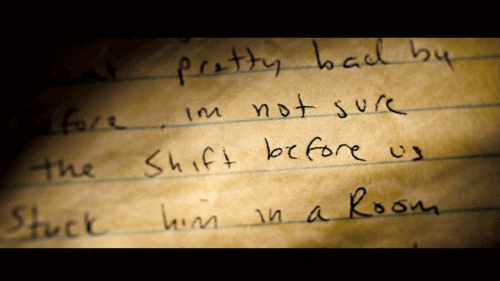 pretty bad by
fore, im not sure
the Shift before us
Stuck him in a Room